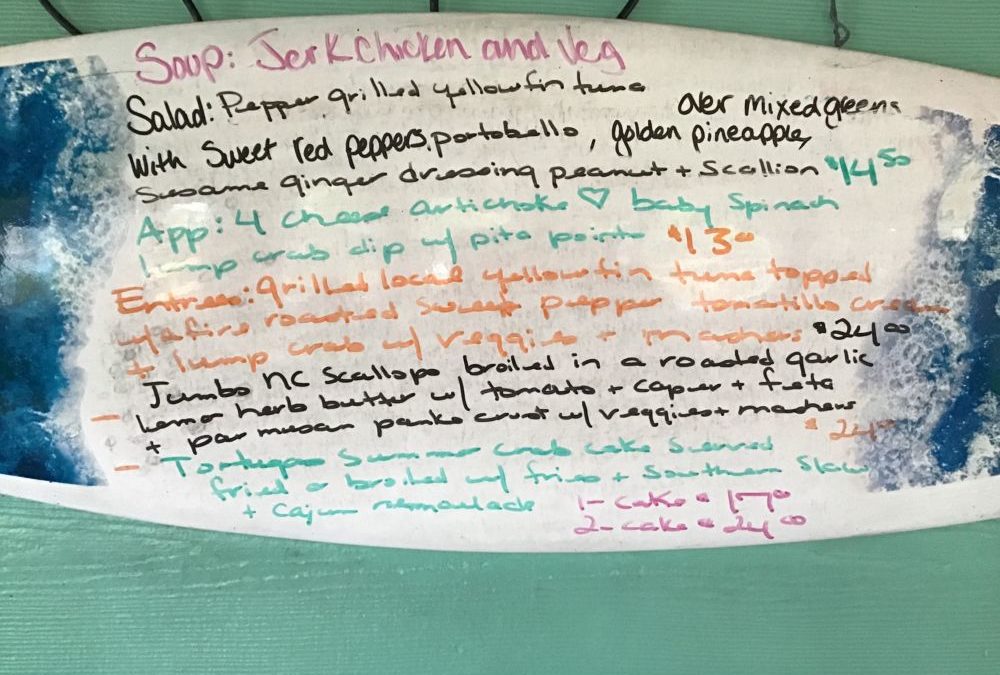 Soup: Jerk Chicken and Veg
Salad: Pepper grilled yellowfin tuna over mixed greens
with Sweet red peppers, portobello, golden pineapple,
Sesame ginger dressing peanut + Scallion $14.50
App: 4 cheese artichoke ♡ baby Spinach
lump crab dip w/ pita points $13.00
Entrees: grilled local yellowfin tuna topped
w/ a fire roasted sweet pepper tomatillo cream
+ lump crab w/ veggies + mashers $24.00
Jumbo NC Scallops broiled in a roasted garlic
- Lemon herb butter w/ tomato + caper + feta
+ parmesan panko crust w/ veggies + mashers $24.00
- Tortugas Summer crab cake served
fried or broiled w/ fries + Southern Slaw
+ Cajun remoulade 1- cake $17.00
2- cake $24.00